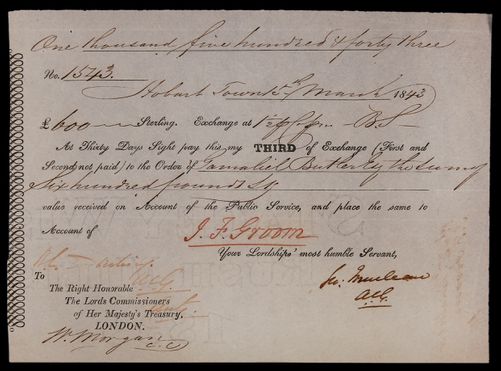 One thousand five hundred & forty three
No. 1543.
Hobart Town March 1843
£ 600 Sterling. Exchange at
At Thirty Days Sight pay this my THIRD of Exchange (First and
Second not paid) to the Order of Gamaliel Butler Esq the sum of
Six hundred pounds Stg
value received on Account of the Public Service, and place the same to
Account of J. F. Groom
Your Lordships' most humble Servant,
To
The Right Honorable
The Lords Commissioners
of Her Majesty's Treasury.
LONDON.
Geo: Maclean
ACG
Wm. Morgan